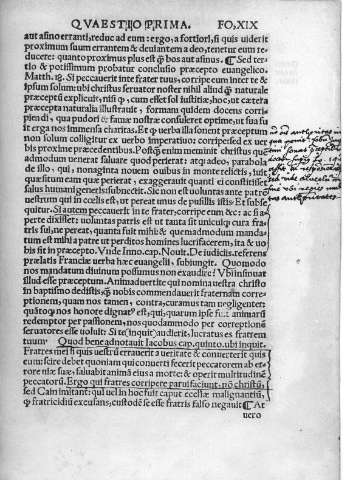 QVAESTIO PRIMA. FO. XIX
aut asino erranti, reduc ad eum: ergo, a fortiori, si quis viderit
proximum suum errantem & deviantem a deo, tenetur eum re-
ducere: quanto proximus plus est q̃ bos aut asinus. ¶ Sed ter-
tio & potissimum probatur conclusio præcepto euangelico.
Matth. 18. Si peccauerit in te frater tuus, corripe eum inter te &
ipsum solum: ubi christus seruator noster nihil aliud q̃ naturale
præceptũ explicuit, nisi q, cum esset sol iustitiæ, hoc, ut cætera
præcepta naturalia illustrauit, formam quidem docens corri-
piendi, qua pudori & famæ nostræ consuleret optime, ut sua fu
it erga nos immensa charitas. Et q̃ verba illa sonent præceptum
non solum colligitur ex verbo imperatiuo: corripe sed ex uer
bis proxime præcedentibus. Postq̃ enim meminit christus que
admodum uenerat saluare quod perierat: atq; adeo, parabola
de illo, qui, nonaginta nouem ouibus in monte relictis, iuit
quæsitum eam quæ perierat, exaggerauit quanti ei constitisset
salus humani generis subnectit. Sic non est voluntas ante patrẽ
uestrum qui in cœlis est, ut pereat unus de pusillis istis Et subse
quitur. Si autem peccauerit in te frater, corripe eum &c: ac si a-
perte dixisset: uoluntas patris est ut tanta sit unicuiq; cura fra-
tris sui, ne pereat, quanta fuit mihi & quemadmodum manda
tum est mihi a patre ut perditos homines lucrifacerem, ita & uo
bis fit in præcepto. Vnde Inno. cap. Nouit. De iudiciis. referens
prælatis Franciæ verba hæc euangelii, subiungit. Quomodo
nos mandatum diuinum possumus non exaudire? Vbi insinuat
illud esse præceptum. Animaduertite qui nomina uestra christo
in baptismo dedistis, q̃ nobis commendauerit fraternam corre
ptionem, quam nos tamen, contra, curamus tam negligenter:
quo nos honore dignatꝰ est, qui, quarum ipse fuit animarũ
redemptor per passionem, nos quodammodo per correptionẽ
seruatores esse uoluit: Si te (inquit) audierit, lucratus es fratrem
tuum Quod bene adnotauit Iacobus cap. quinto. ubi inquit.
Fratres mei si quis uestrũ errauerit a ueritate & conuerterit quis
eum: scire debet quoniam qui conuerti fecerit peccatorem ab er-
rore uiæ suæ, saluabit animã eius a morte & operit multitudinẽ
peccatorũ. Ergo qui fratres corripere parui faciunt: nõ christũ,
sed Cain imitant: qui uel in hoc fuit caput ecclesiæ malignantiũ,
q̃ fratricidiũ excusans, custodẽ se esse fratris falso negauit ¶ At
uero